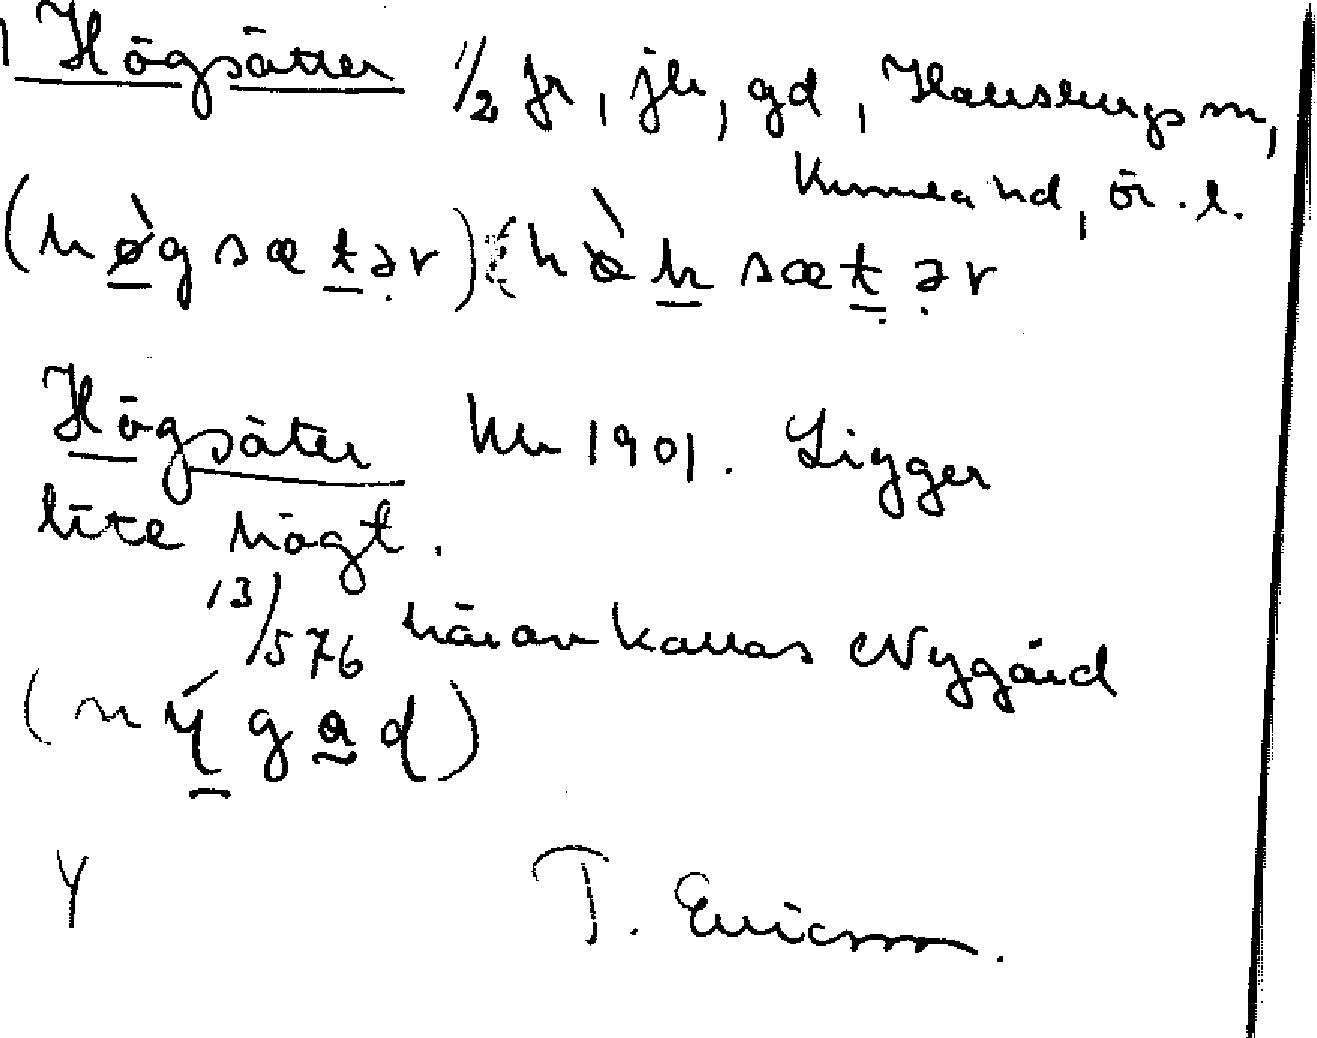 Högsätter 1/2 fr, jb, gd, Hallsbergs m,
Kumla hd, ör. l.
(hø̀gsætər) (hø̀ksætər
Högsäter kb 1901. Ligger
lite högt.
13/576 härav kallas Nygård
(nýgaḍ)
T. Ericsson.